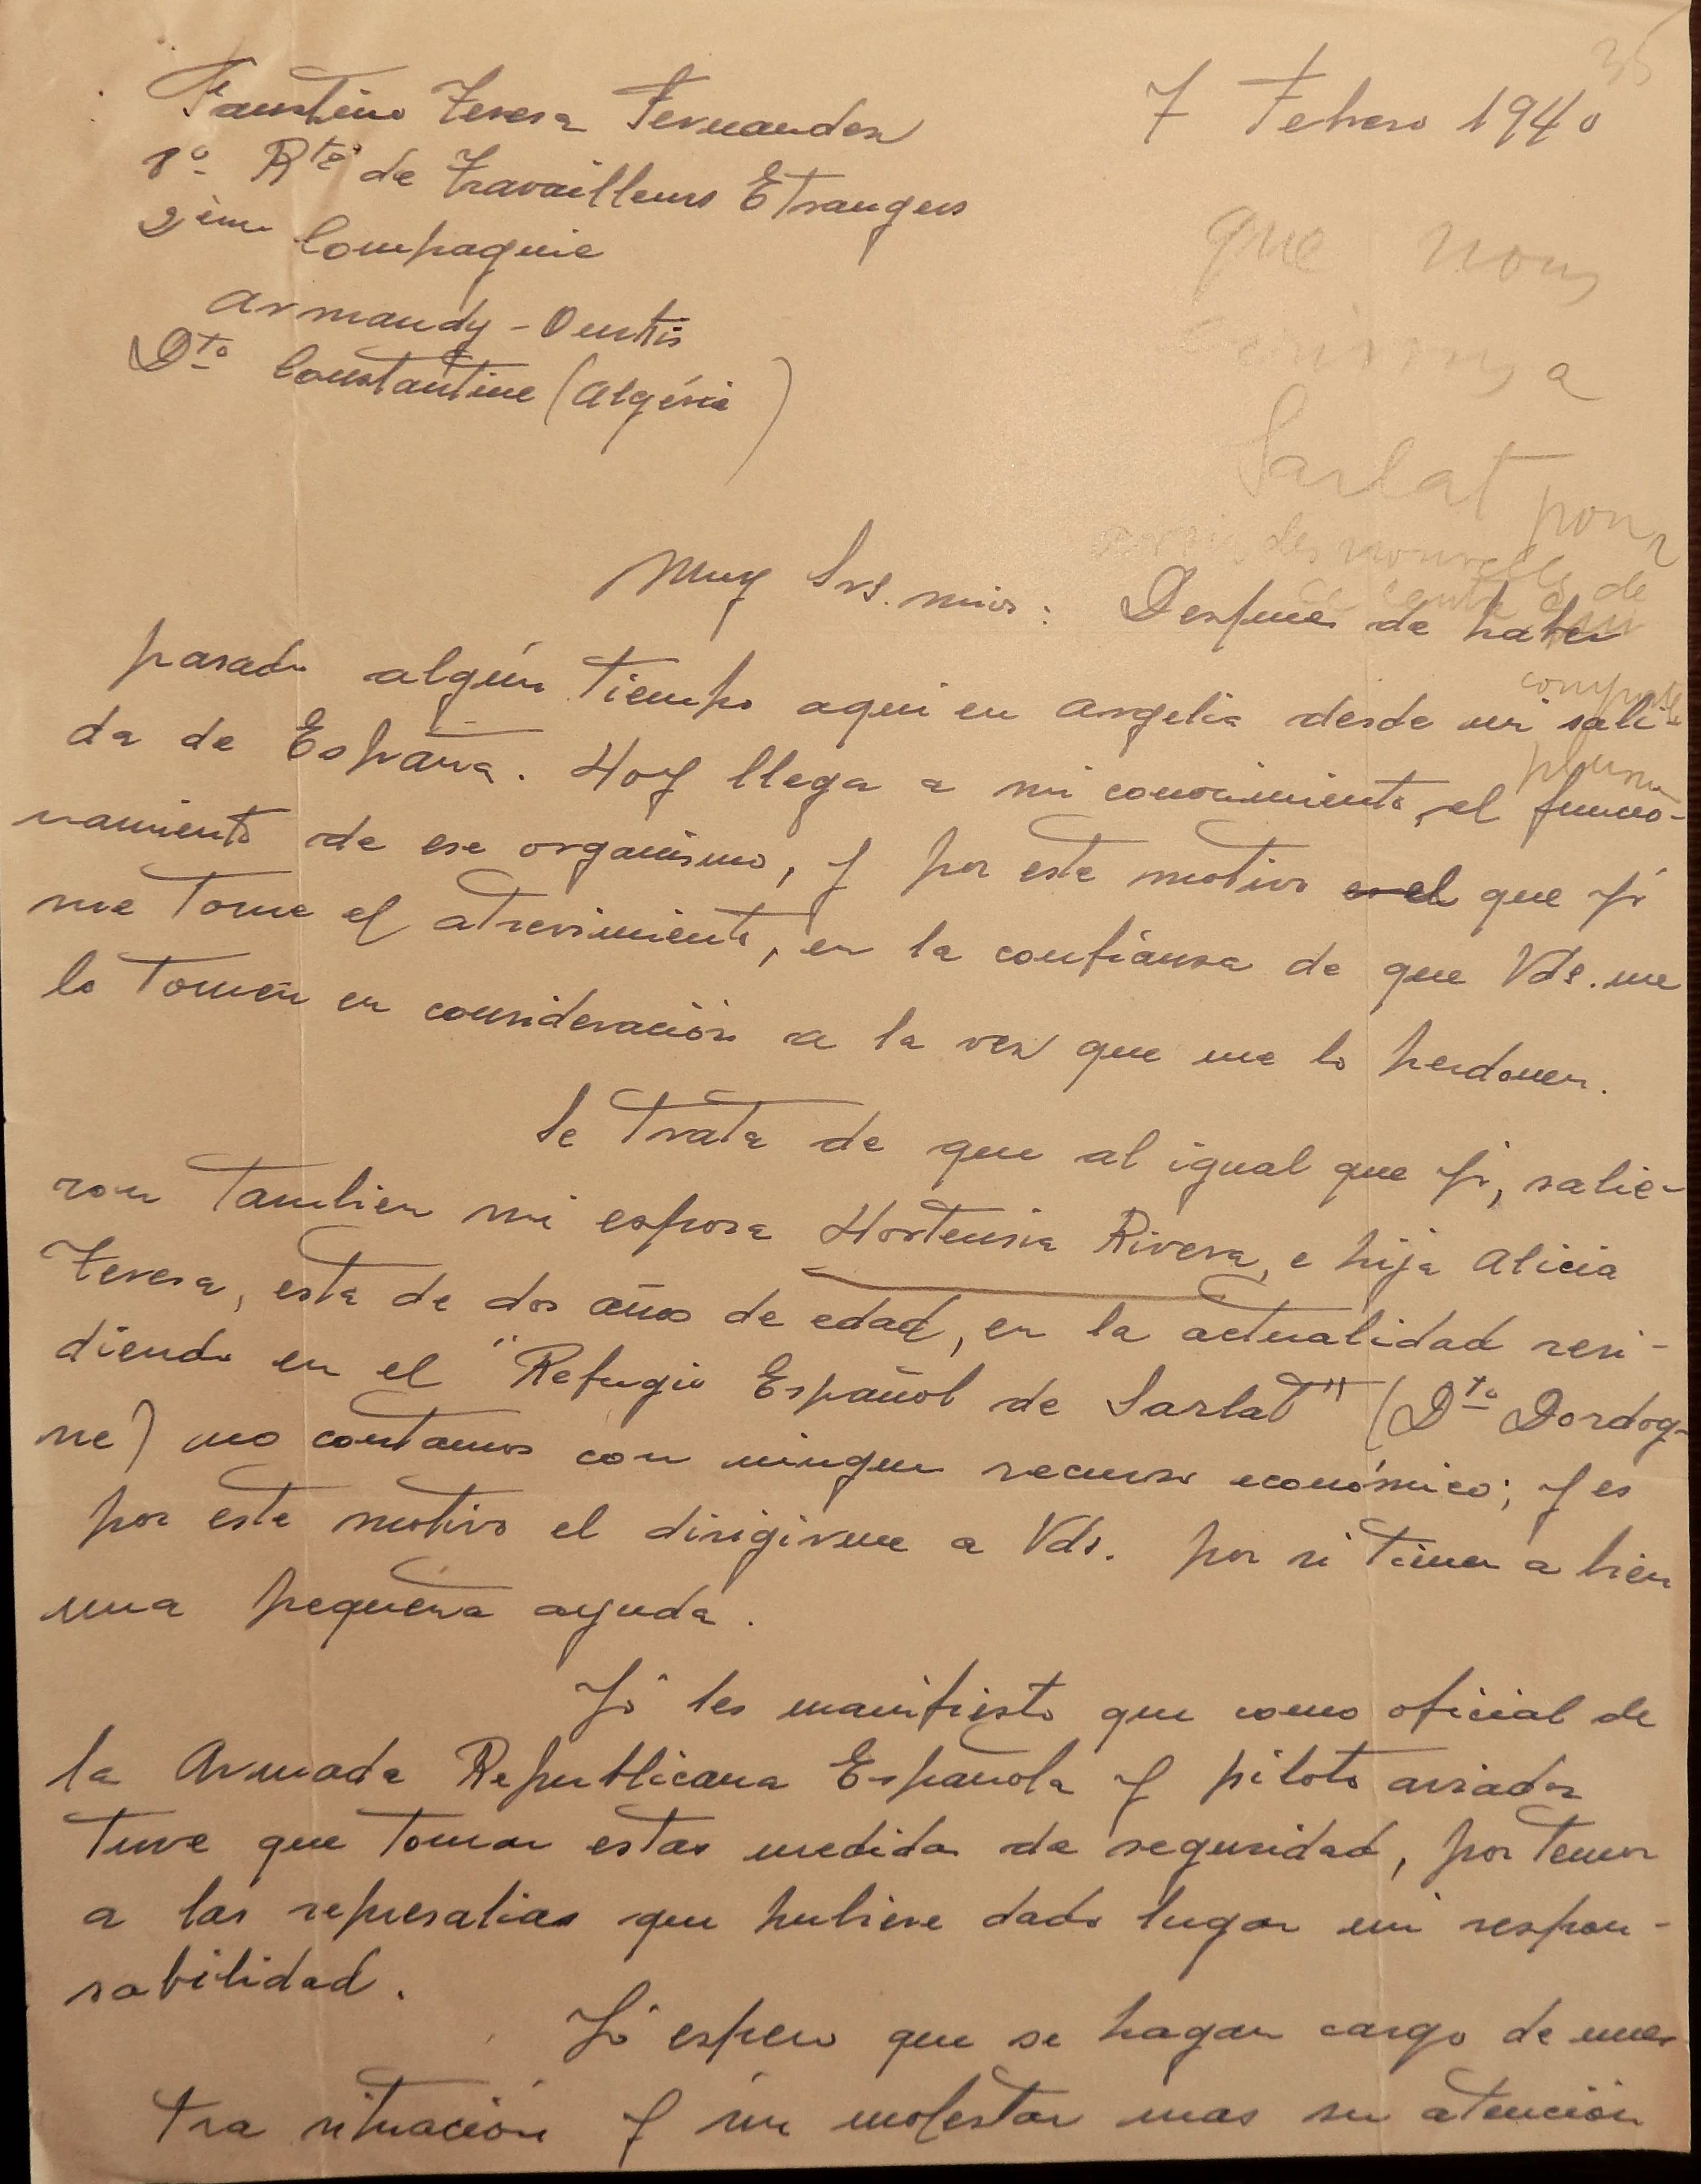 35
Faustino Teresa Fernandez
7 Febrero 1940
8º Rte de Travailleurs Etrangers
2ème Compagnie
Armandy - Oustis
Dto Constantine (Algérie)
que nous
a
Sarlat pour
des nouvelles de
Muy Srs. mios: Despues de haber
compte
pasado algún tiempo aqui en Argelia desde mi sali-
da de España. Hoy llega a mi conocimiento, el funcio-
namiento de ese organismo, y por este motivo es el que yó
me tome el atrevimiento, en la confianza de que Vds. me
lo tomen en consideración a la vez que me lo perdonen.
Se trata de que al igual que yó, salie-
ron tambien mi esposa Hortensia Rivera, e hija Alicia
Teresa, esta de dos años de edad, en la actualidad resi-
diendo en el "Refugio Español de Sarlat" (Dto Dordog-
ne) no contamos con ningun recurso económico; y es
por este motivo el dirigirme a Vds. por si tienen a bien
una pequeña ayuda.
Yó les manifiesto que como oficial de
la Armada Republicana Española y piloto aviador
tuve que tomar estas medidas de seguridad, por temor
a las represalias que hubiese dado lugar mi respon-
sabilidad.
Yó espero que se hagan cargo de nues-
tra situación y sin molestar mas su atención